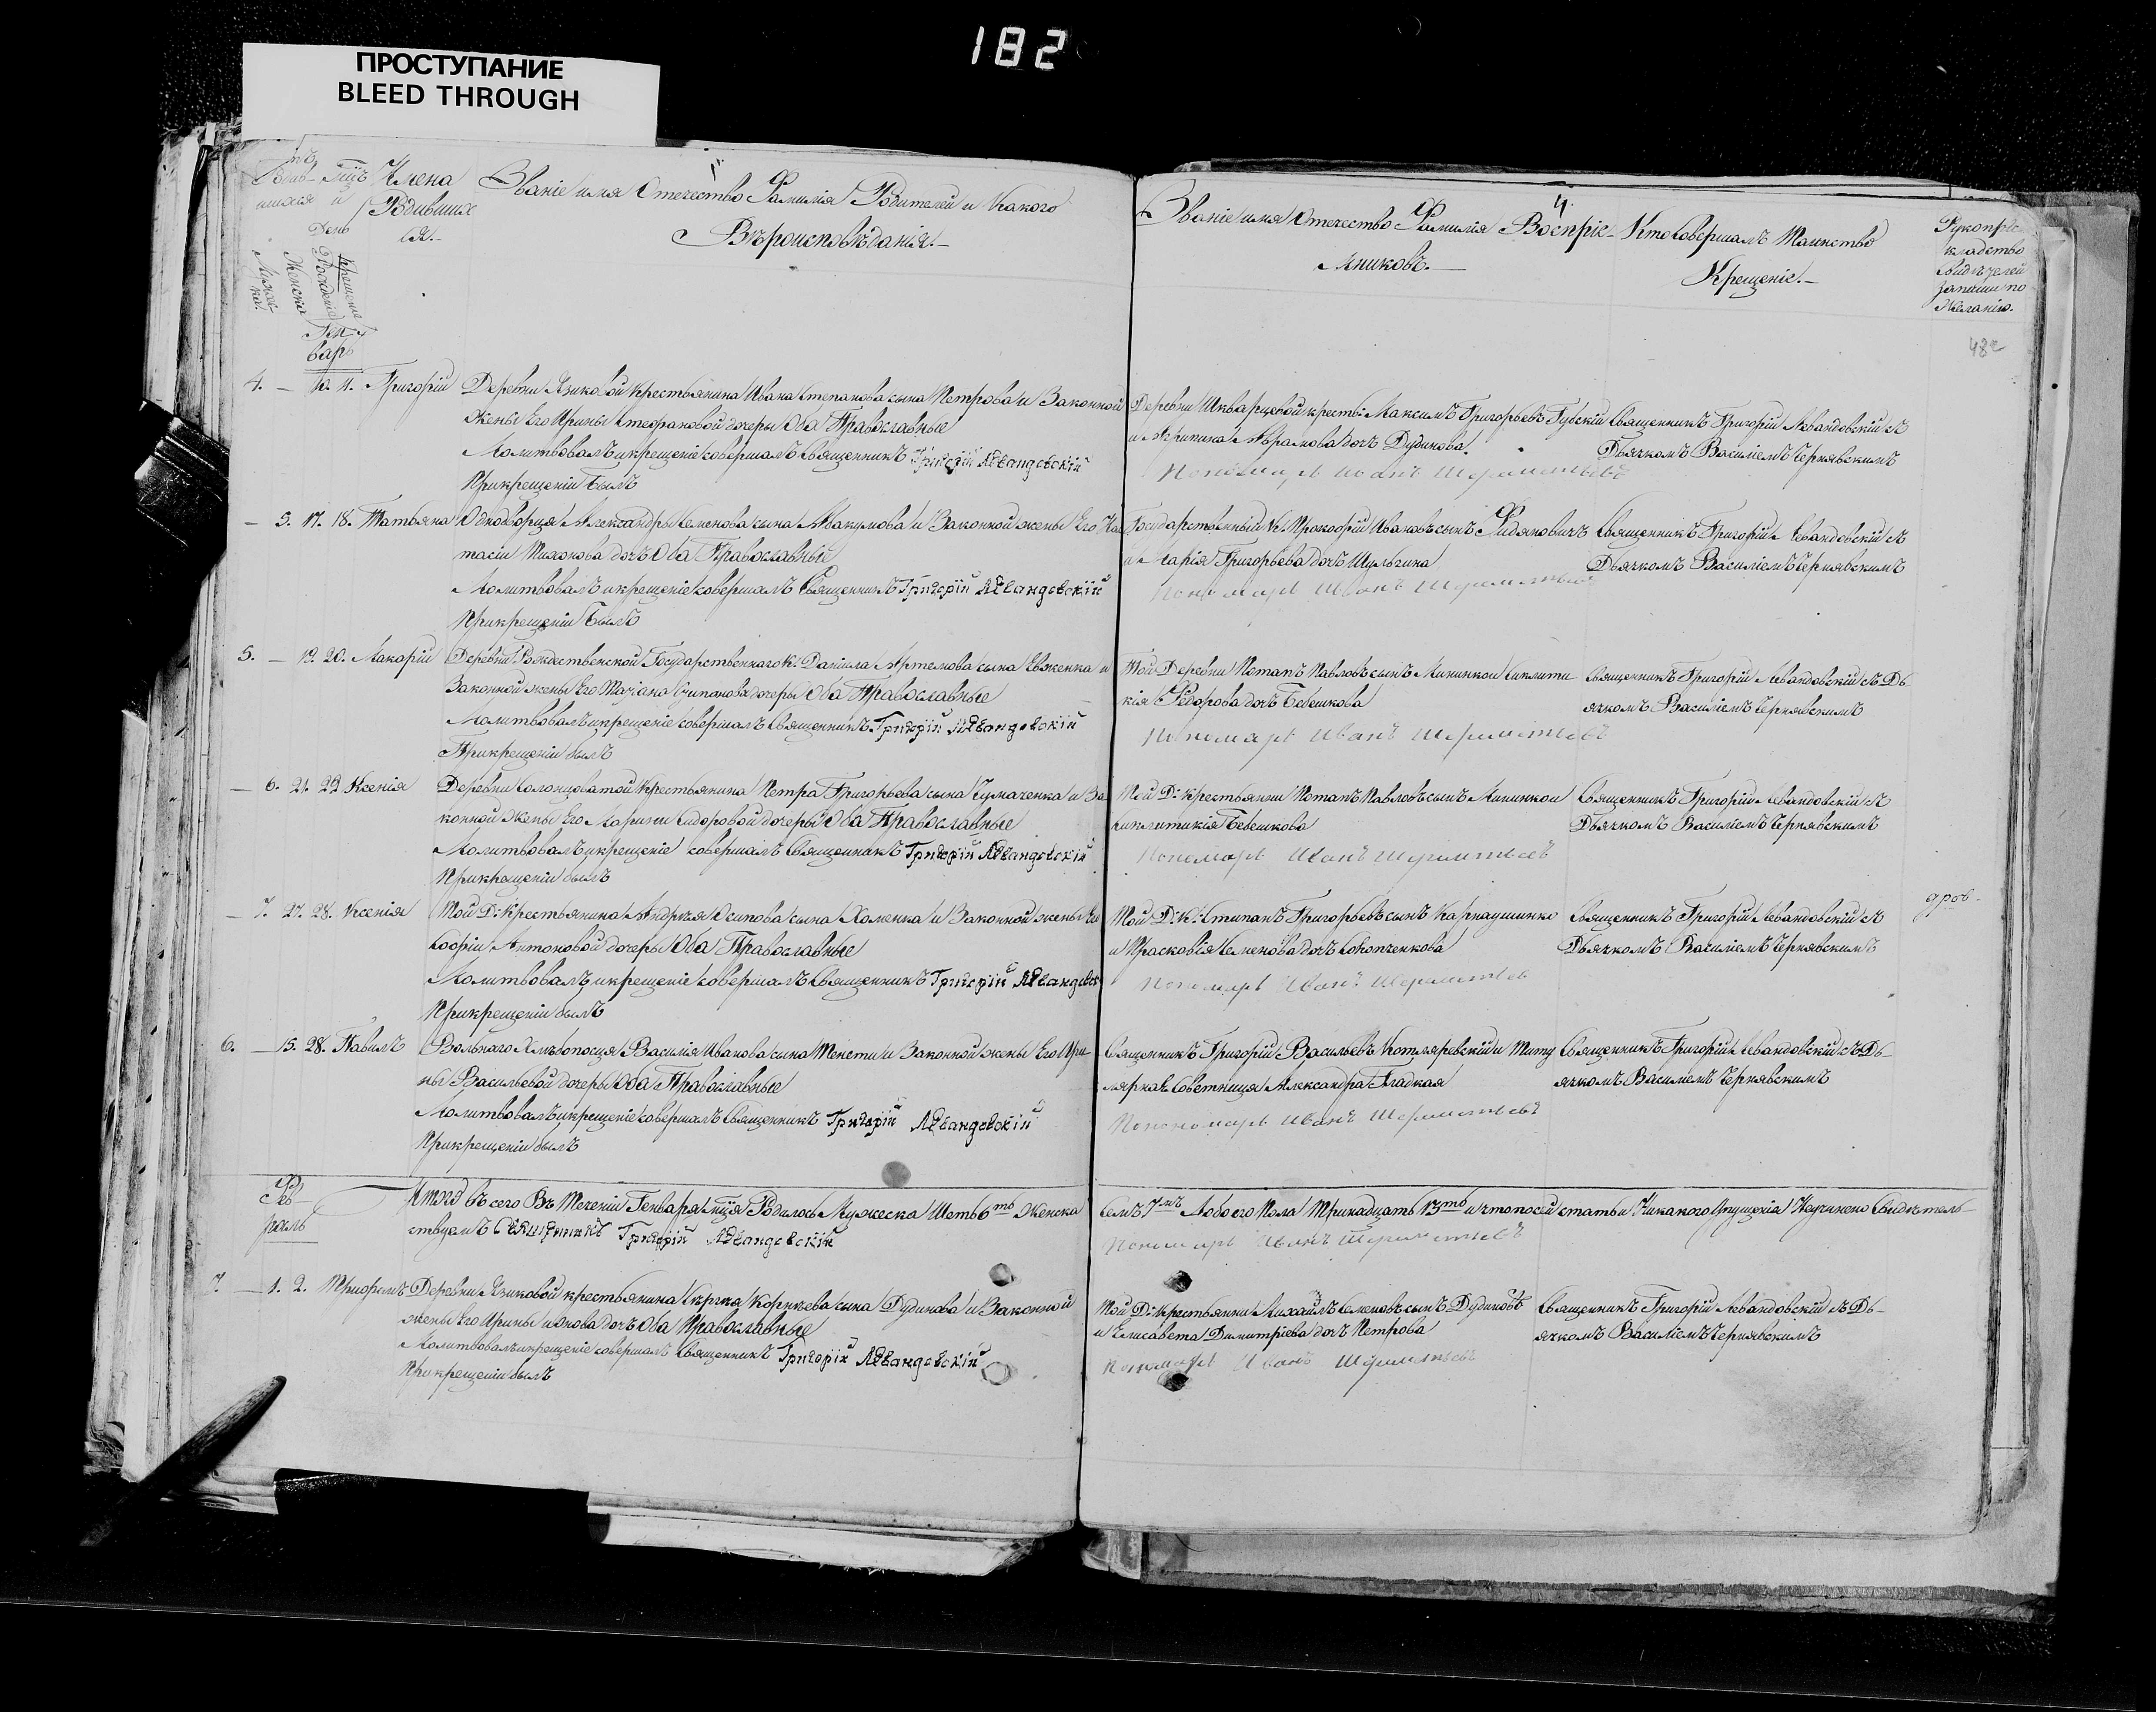 182
ПРОСТУПАНИЕ
BLEED THROUGH
Имена
Родивших
ся.-
Званіе имя Отечество Фамилія Родителей и Какого
Вѣроисповѣданія.-
Званіе имя Отечество Фамилія Воспріе-
мниковъ.-
Кто Совершалъ Таинство
Крещеніе.-
Рукопри-
кладство
Свидѣтелей
записи по
Желанію.
482
День
Рожденія
Крещенія
Женска
Ген
варь
4. - 10. 11. Григорій Деревни Языковой Крестьянина Ивана Степанова сына Петрова и Законной
жены Его Ирины Стефановой дочеры Оба Православные
Молитвовалъ и крещеніе совершалъ Священникъ Григорій Левандовскій
При крещеніи Былъ
Деревни Шкварцевой крестья: Максимъ Григорьевъ Губскій
и Агрипина Абрамова дочь Дудникова.
Пономарь Иванъ Шереметьевъ
Священникъ Григорій Левандовскій съ
Дьячкомъ Василіемъ Чернявскимъ
- 5. 17. 18. Татьяна Однодворца Александры Семенова сына Авакумова и Законной жены Его Нас
тасіи Тихонова дочь Оба Православные
Молитвовалъ и крещеніе совершалъ Священникъ Григорій Левандовскій
При крещеніи Былъ
Государственный К: Прокофій Ивановъ сынъ
и Марія Григорьева дочь Шульгина
Пономарь Иванъ Шереметьевъ
Священникъ Григорій Левандовскій съ
Дьячкомъ Василіемъ Чернявскимъ
5. - 19. 20. Макарій Деревни Рождественской Государственнаго К: Даніила Артемова сына Евженка и
Законной жены Его Осипова дочеры Оба Православные
Молитвовалъ и крещеніе совершалъ Священникъ Григорій Левандовскій
При крещеніи былъ
Той Деревни Потапъ Павловъ сынъ Мининкои Синклити
кія Федорова дочь Бебешкова
Пономарь Иванъ Шереметьевъ
Священникъ Григорій Левандовскій съ Дь-
ячкомъ Василіемъ Чернявскимъ
- 6. 21. 22. Ксенія Деревни Солонцоватой Крестьянина Петра Григорьева сына Чумаченка и За
конной жены Его Марины Сидоровой дочеры Оба Православные
Молитвовалъ и крещеніе совершалъ Священникъ Григорій Левандовскій
При крещеніи былъ
Той Д: Крестьянин Потапъ Павловъ сынъ Мининкои
Синклитикія Бебешкова
Пономарь Иванъ Шереметьевъ
Священникъ Григорій Левандовскій съ
Дьячкомъ Василіемъ Чернявскимъ
- 7. 27. 28. Ксенія Той Д: Крестьянина Андрѣя Осипова сына Хоменка и Законной жены Его
Софіи Антоновой дочеры Оба Православные
Молитвовалъ и крещеніе совершалъ Священникъ Григорій Левандовск
При крещеніи былъ
Той Д: К: Стипанъ Григорьевъ сынъ Карнаушинко
и Прасковія Семенова дочь
Пономарь Иванъ Шереметьев
Священникъ Григорій Левандовскій съ
Дьячкомъ Василіемъ Чернявскимъ
6. - 15. 28. Павилъ Вольнаго Хлѣбопосця Василія Иванова сына и Законной жены Его Ири-
ны Васильевой дочеры Оба Православные
Молитвовалъ и крещеніе совершалъ Священникъ Григорій Левандовскій
При крещеніи былъ
Священникъ Григорій Васильевъ Котляревскій и Титу
лярнаѣ Советница Александра Гладкая
Пономарь Иванъ Шереметьевъ
Священникъ Григорій Левандовскій съ Дь-
ячкомъ Василіемъ Чернявскимъ
Фев
раль
Итого въ сего Въ Теченіи Генваря Родилось Мужеска Шеть 6ть Женска
Семъ 7мъ Обоего Пола Тринадцать 13ть и что по сей статьи Никакого Опущенія Неучинено Свидѣтель-
ствуемъ Священникъ Григорій Левандовскій
Пономарь Иванъ Шереметьевъ
7. - 1. 2. Трифилъ Деревни Языковой крестьянина Корнѣева сына Дудникова и Законной
жены Его Ирины дочь Оба Православные
Молитвовалъ и крещеніе совершалъ Священникъ Григорій Левандовскій
При крещеніи былъ
Той Д: крестьянин Михайлъ Семеновъ сынъ Дудниковъ
и Елисавета Димитріева дочь Петрова
Пономарь Иванъ Шереметьевъ
Священникъ Григорій Левандовскій съ Дь-
ячкомъ Василіемъ Чернявскимъ